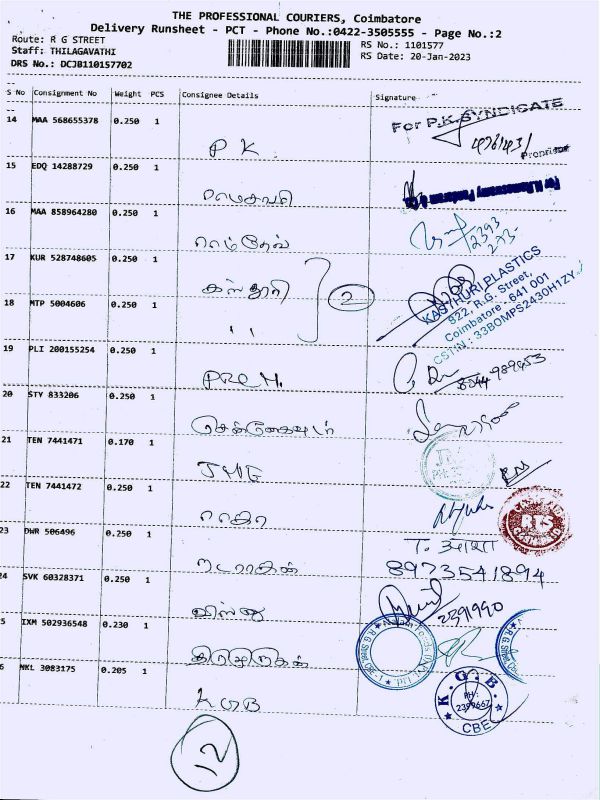 THE PROFESSIONAL COURIERS, Coimbatore
Delivery Runsheet - PCT - Phone No.:0422-3505555 - Page No.:2
Route: R G STREET
Staff: THILAGAVATHI
DRS No.: DCJB110157702
RS No.: 1101577
RS Date: 20-Jan-2023
S No Consignment No Weight PCS Consignee Details Signature
14 MAA 568655378 0.250 1 P K
For P.K.SYNDICATE
Proprietor
15 EDQ 14288729 0.250 1
16 MAA 858964280 0.250 1 ராம்தேவ்
17 KUR 528748605 0.250 1 கஸ்தூரி
2
KASTHURI PLASTICS
822, R.G. Street,
Coimbatore - 641 001
GSTIN : 33BOMPS2430H1ZY
18 MTP 5004606 0.250 1 ''
19 PLI 200155254 0.250 1 PREM.
20 STY 833206 0.250 1
21 TEN 7441471 0.170 1
22 TEN 7441472 0.250 1 ராகா
RTS
23 DWR 506496 0.250 1
T. आशा
8973541894
24 SVK 60328371 0.250 1 விஸ்ணு
2391990
25 IXM 502936548 0.230 1
26 NKL 3083175 0.205 1 KGB
K.G.B.
PH:
2399667
CBE
12